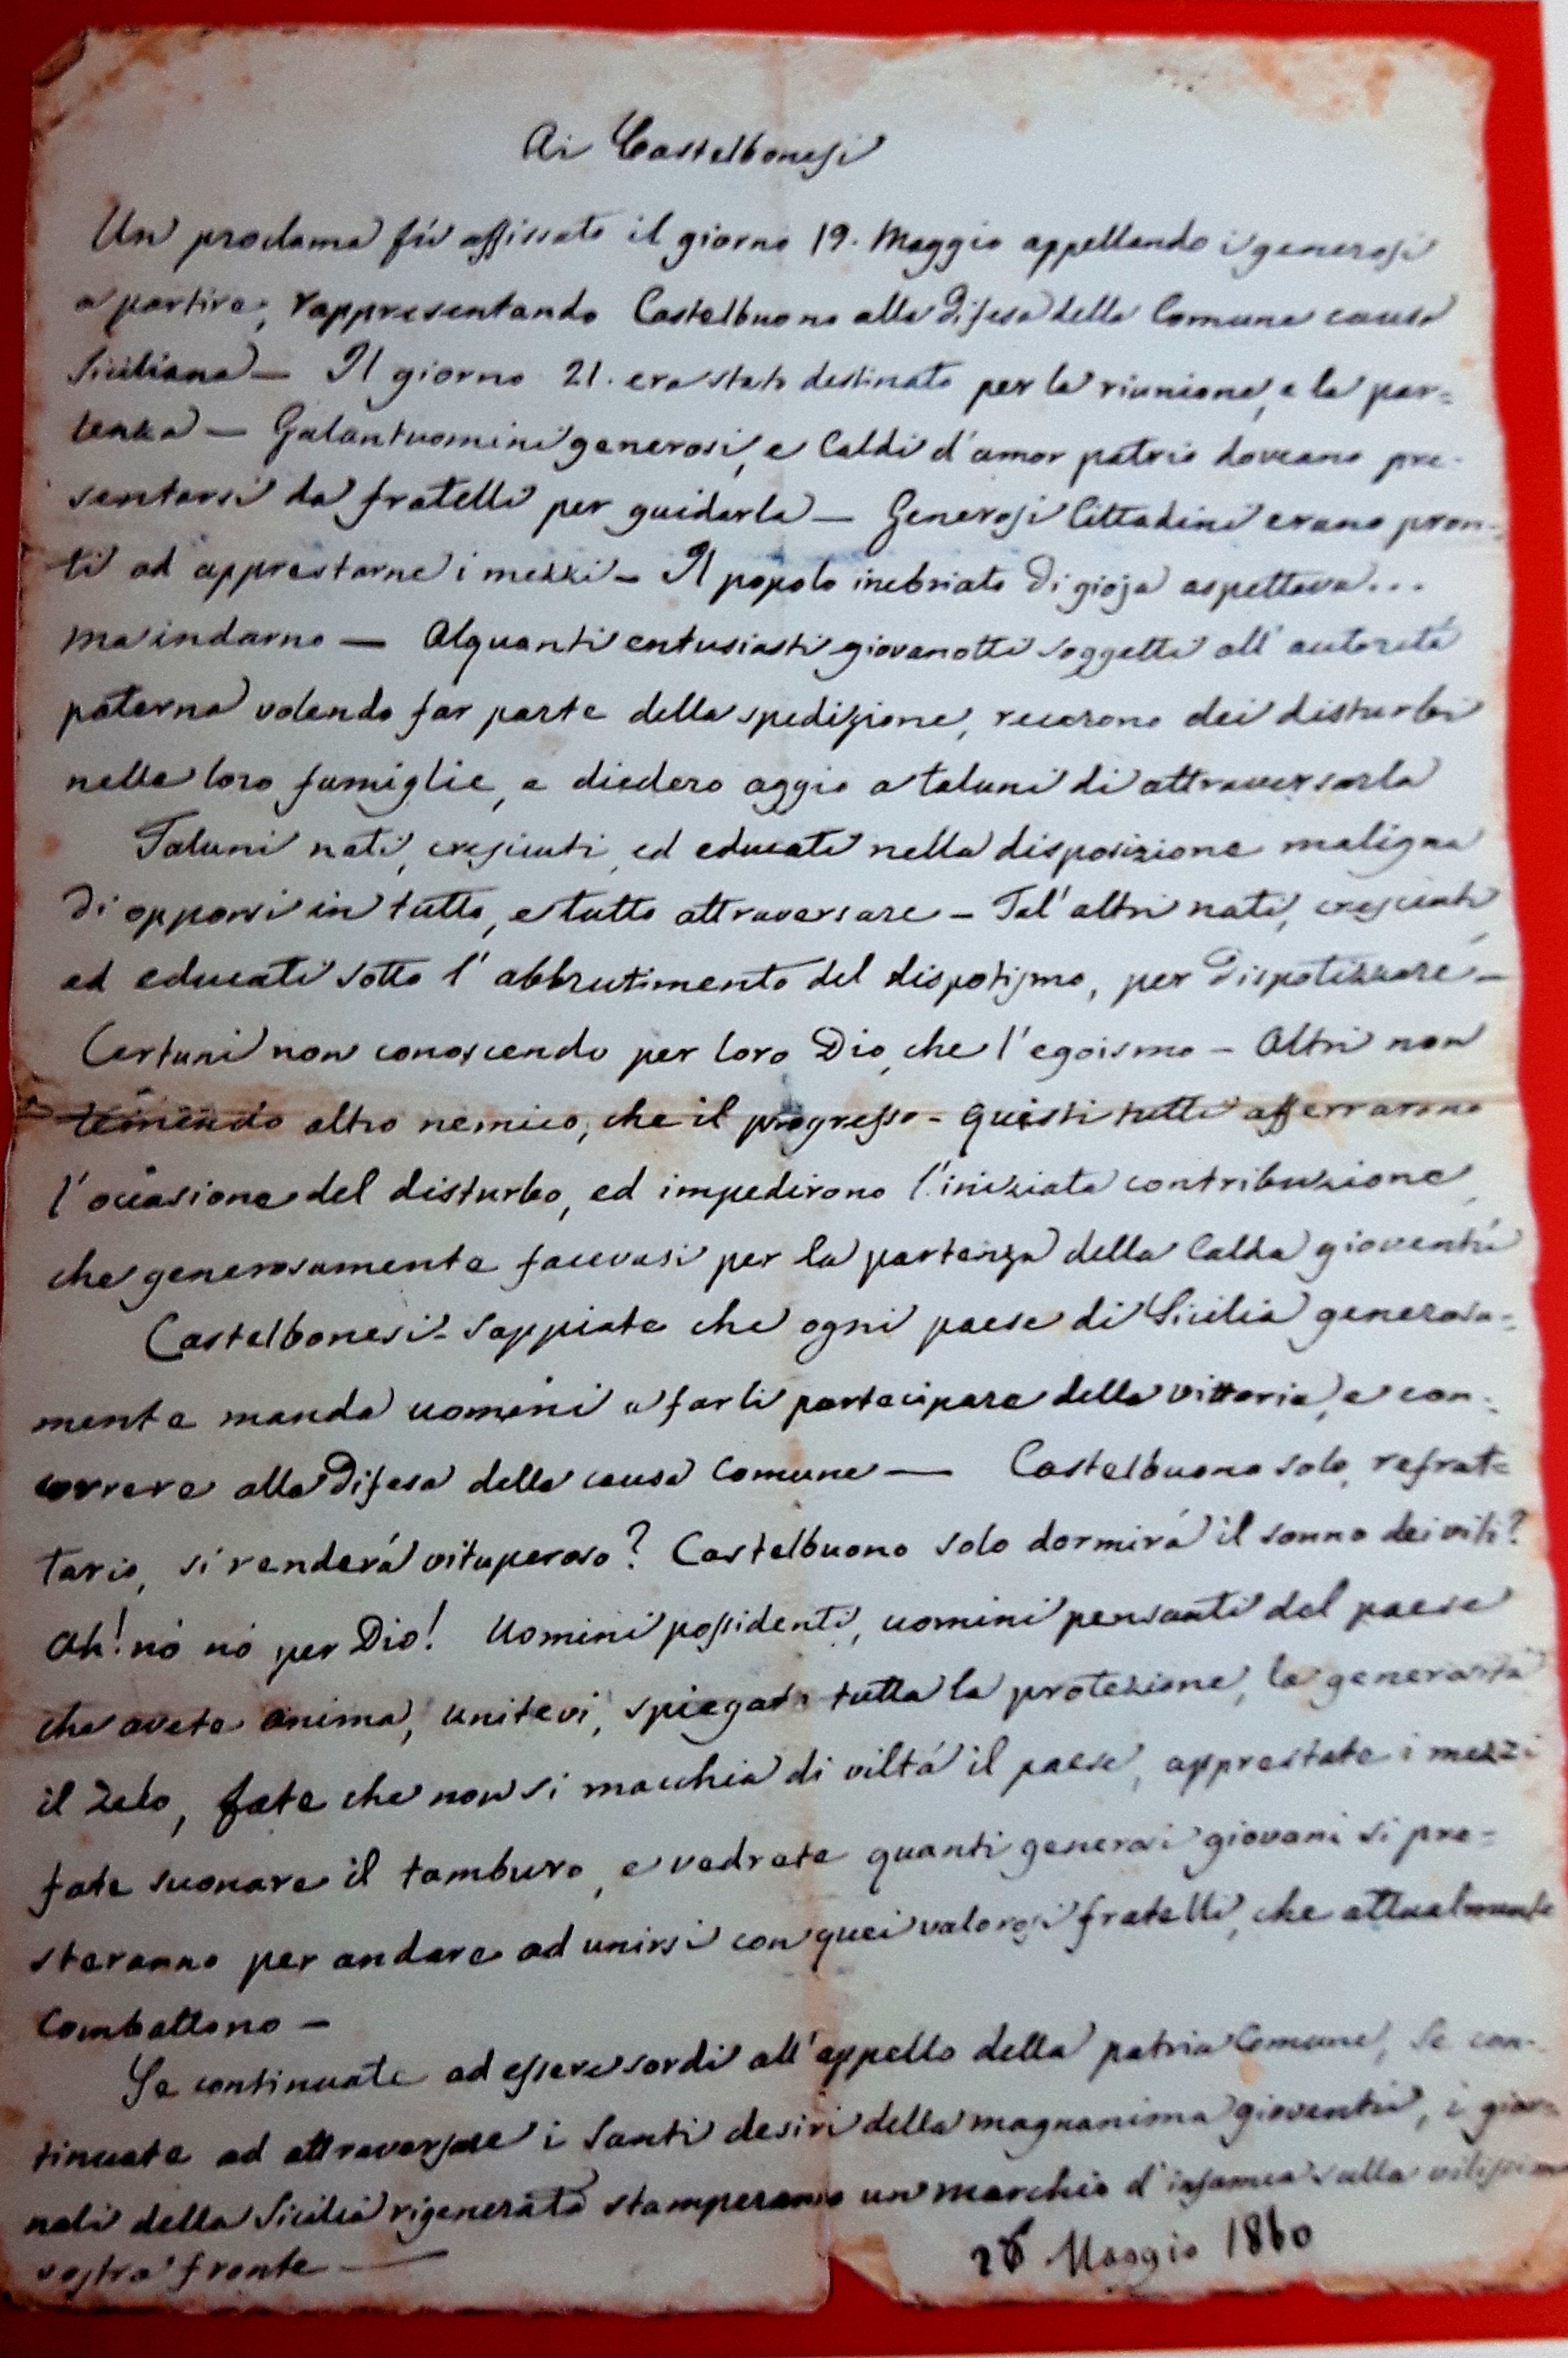 Ai Castelbonesi
Un proclama fù affissato il giorno 19. Maggio appellando i generosi
a partire, rappresentando Castelbuono alla difesa della Comune causa
Siciliana — Il giorno 21. era stato destinato per la riunione, e la par=
tenza — Galantuomini generosi, e Caldi d'amor patrio doveano pre-
sentarsi da fratelli per guidarla — Generosi Cittadini erano pron-
ti ad apprestarne i mezzi — Il popolo inebriato di gioja aspettava...
ma indarno — Alquanti entusiasti giovanotti soggetti all'autorità
paterna volendo far parte della spedizione, recarono dei disturbi
nelle loro famiglie, e diedero aggio a taluni di attraversarla
Taluni nati, cresciuti, ed educati nella disposizione maligna
di opporsi in tutto, e tutto attraversare — Tal'altri nati, cresciuti
ed educati sotto l'abbrutimento del dispotismo, per dispotizzare —
Certuni non conoscendo per loro Dio, che l'egoismo — Altri non
temendo altro nemico, che il progresso — Questi tutti afferrarono
l'occasione del disturbo, ed impedirono l'iniziata contribuzione,
che generosamente facevasi per la partenza della Calda gioventù
Castelbonesi - Sappiate che ogni paese di Sicilia generosa=
mente manda uomini a farli partecipare della vittoria, e con-
correre alla difesa della causa Comune — Castelbuono solo, refrat=
tario, si renderà vituperoso? Castelbuono solo dormirà il sonno dei vili?
Ah! nò nò per Dio! Uomini possidenti, uomini pensanti del paese
che avete anima, unitevi, spiegate tutta la protezione, la generosità
il zelo, fate che non si macchia di viltà il paese, apprestate i mezzi
fate suonare il tamburo, e vedrete quanti generosi giovani si pre-
steranno per andare ad unirsi con quei valorosi fratelli, che attualmente
Combattono —
Se continuate ad essere sordi all'appello della patria Comune, Se con-
tinuate ad attraversare i Santi desiri della magnanima gioventù, i gior-
nali della Sicilia rigenerata stamperanno un marchio d'infamia sulla vilissima
vostra fronte —
26 Maggio 1860